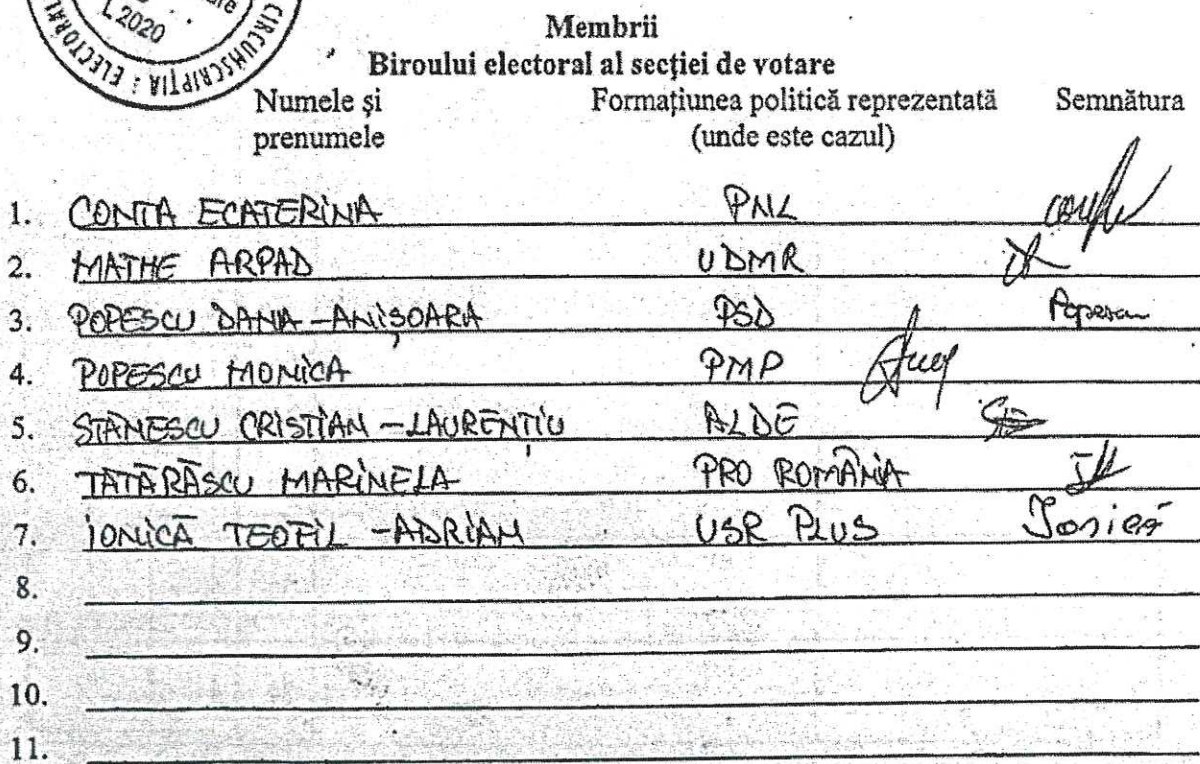 L 2020
CIRCUMSCRIPȚIA ELECTORAL
Membrii
Biroului electoral al secției de votare
Numele și prenumele Formațiunea politică reprezentată (unde este cazul) Semnătura
1. CONTA ECATERINA PNL
2. MATHE ARPAD UDMR
3. POPESCU DANA-ANIȘOARA PSD Popescu
4. POPESCU MONICA PMP
5. STĂNESCU CRISTIAN-LAURENȚIU ALDE
6. TĂTĂRĂSCU MARINELA PRO ROMÂNIA
7. IONICĂ TEOFIL-ADRIAN USR PLUS Ionică
8.
9.
10.
11.